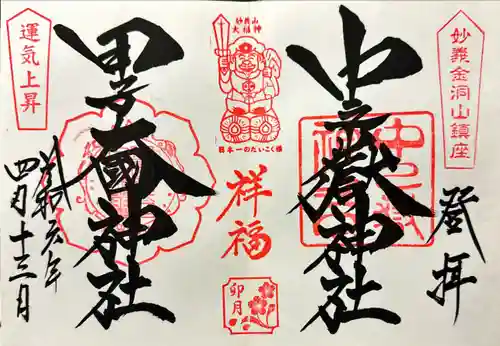 妙義金洞山鎮座
登拝
中之嶽神社
妙義山
大福神
日本一のだいこく様
祥福
卯月
甲子大國神社
運気上昇
令和六年
四月十三日